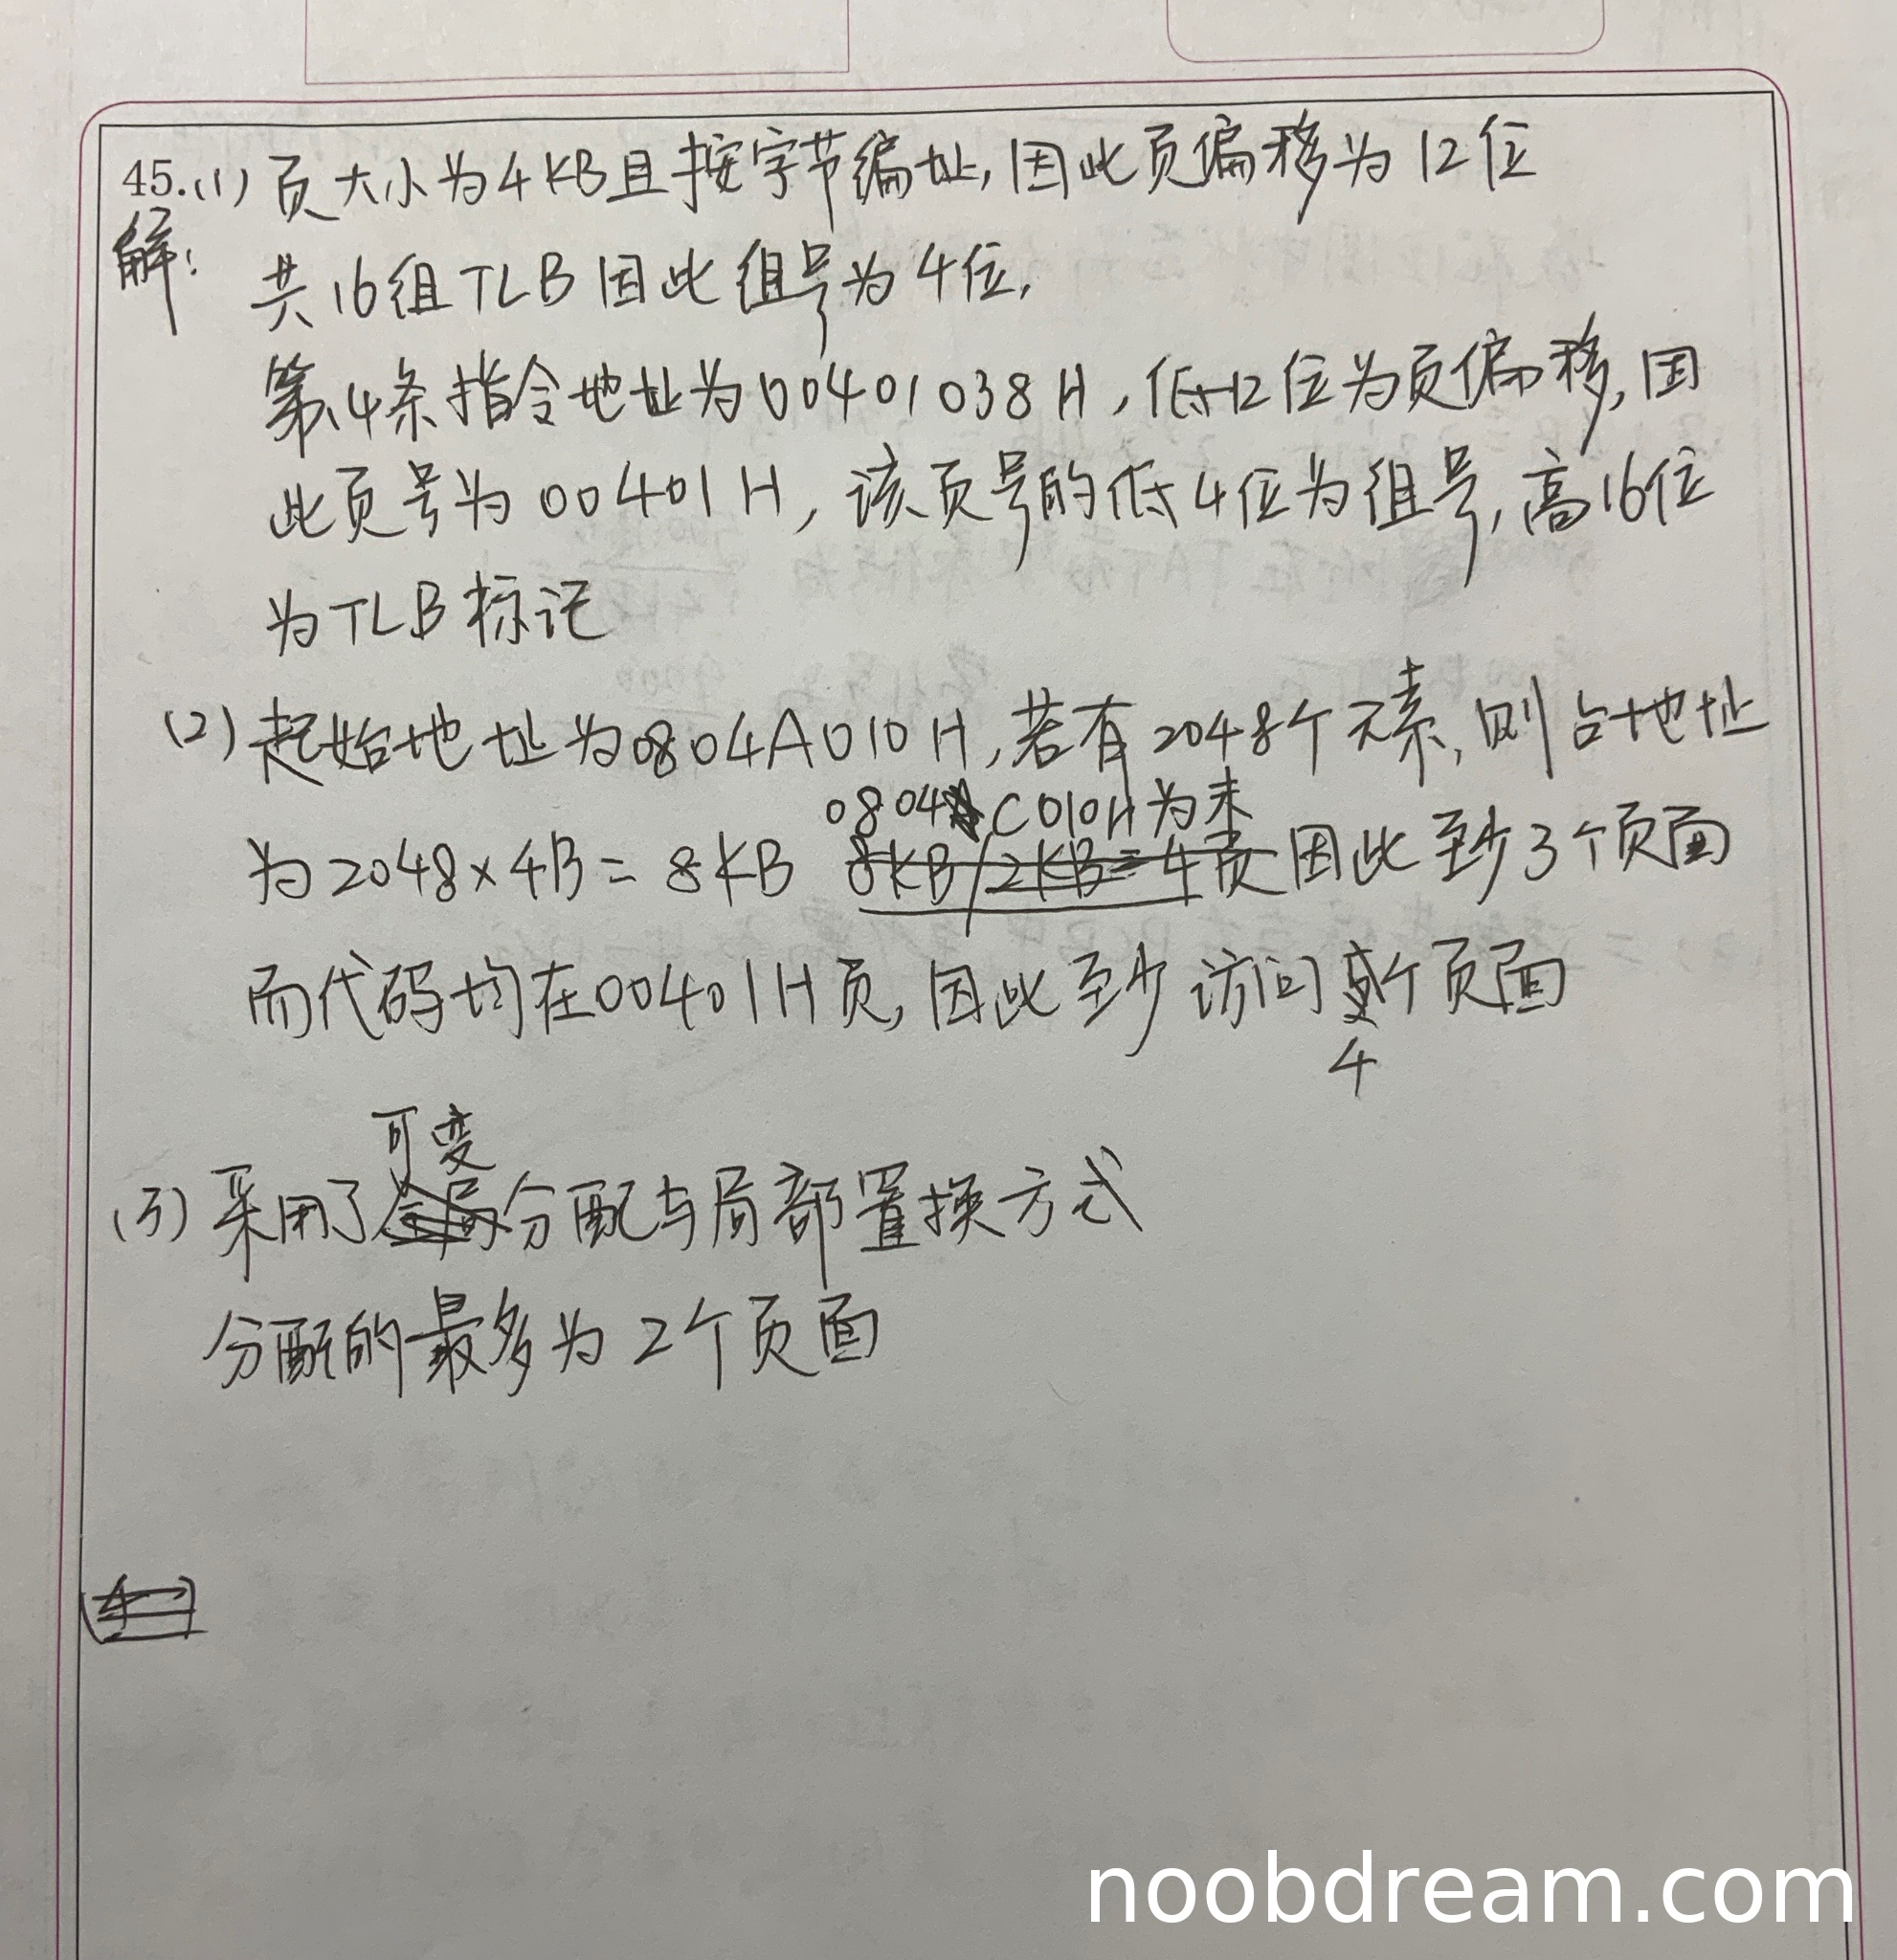 45.(1) 页大小为4KB且按字节编址,因此页偏移为12位
解: 共16组TLB因此组号为4位,
第4条指令地址为00401038H,低12位为页偏移,因
此页号为00401H,该页号的低4位为组号,高16位
为TLB标记
(2) 起始地址为0804A010H,若有2048个元素,则占地址
0804C010H为末
为2048×4B=8KB 8KB/2KB=4页因此至少3个页面
而代码均在00401H页,因此至少访问个页面
4
可变
(3) 采用了全局分配与局部置换方式
分配的最多为2个页面
(4)
noobdream.com